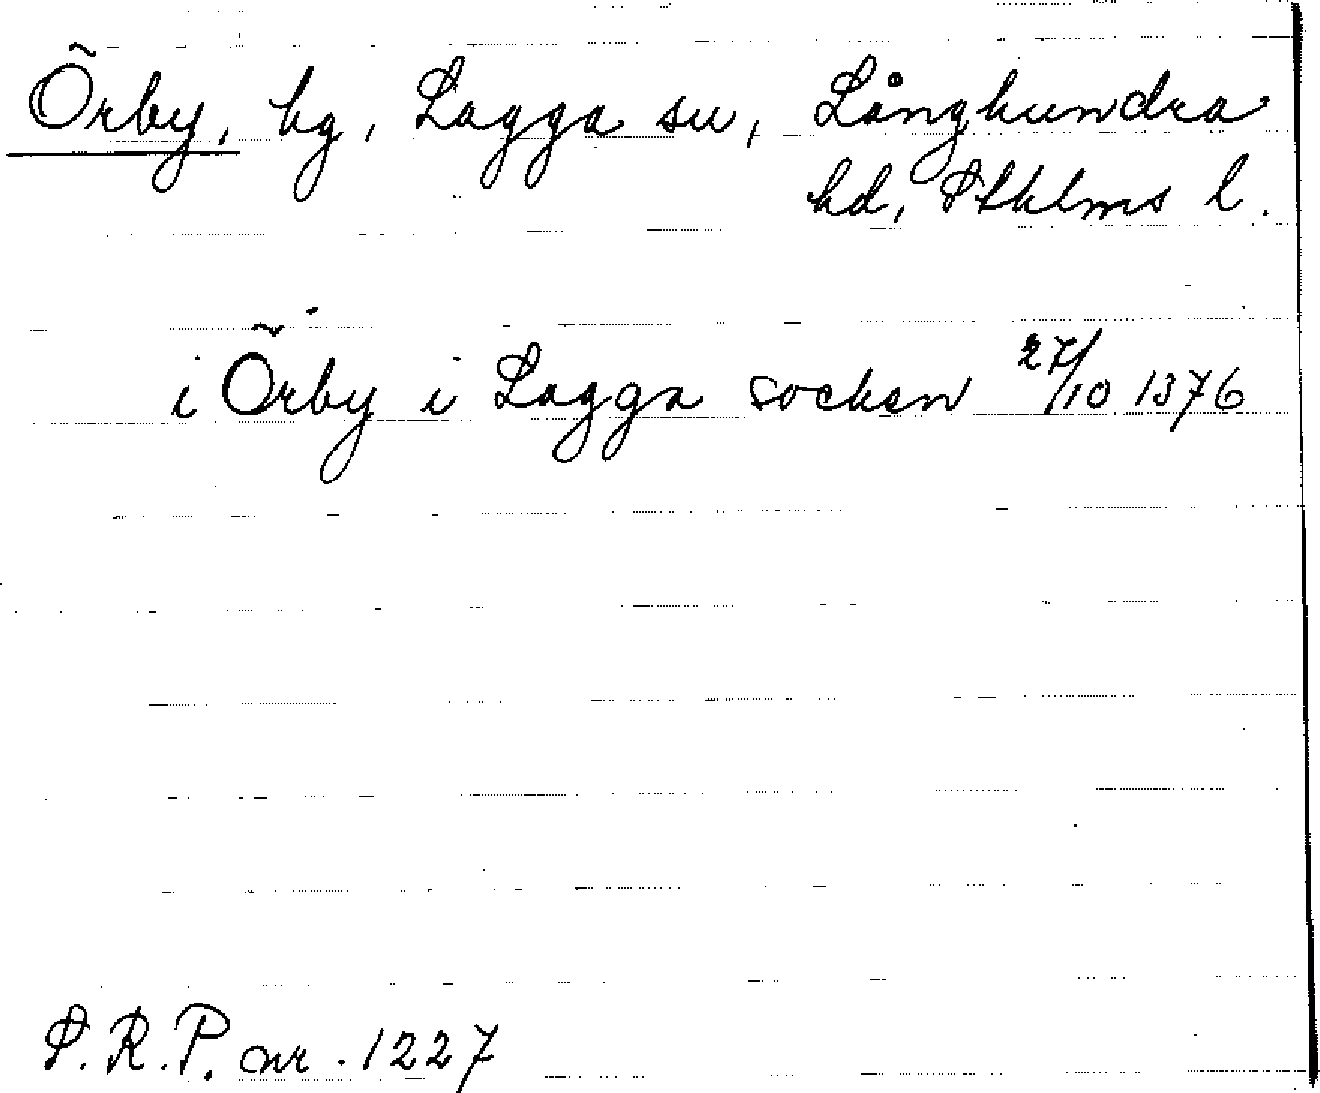 Örby, by, Lagga sn, Långhundra
hd, Sthlms l.
i Örby i Lagga socken 27/10 1376
S.R.P. nr. 1227